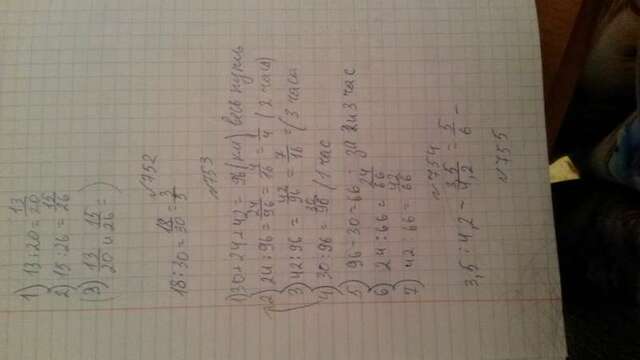 1) 13:20=13/20
2) 15:26=15/26
(3) 13/20 и 15/26 =)
№752
18:30=18/30=3/5
№753
1) 30+24+42=96(км) весь путь
2) 24:96=24/96=4/16=1/4 (2 часа)
3) 42:96=42/96=7/16 (3 часа
4) 30:96=30/96 (1 час
5) 96-30=66 за 2 и 3 час
6) 24:66=24/66
7) 42:66=42/66
№754
3,5:4,2=3,5/4,2=5/6
№755